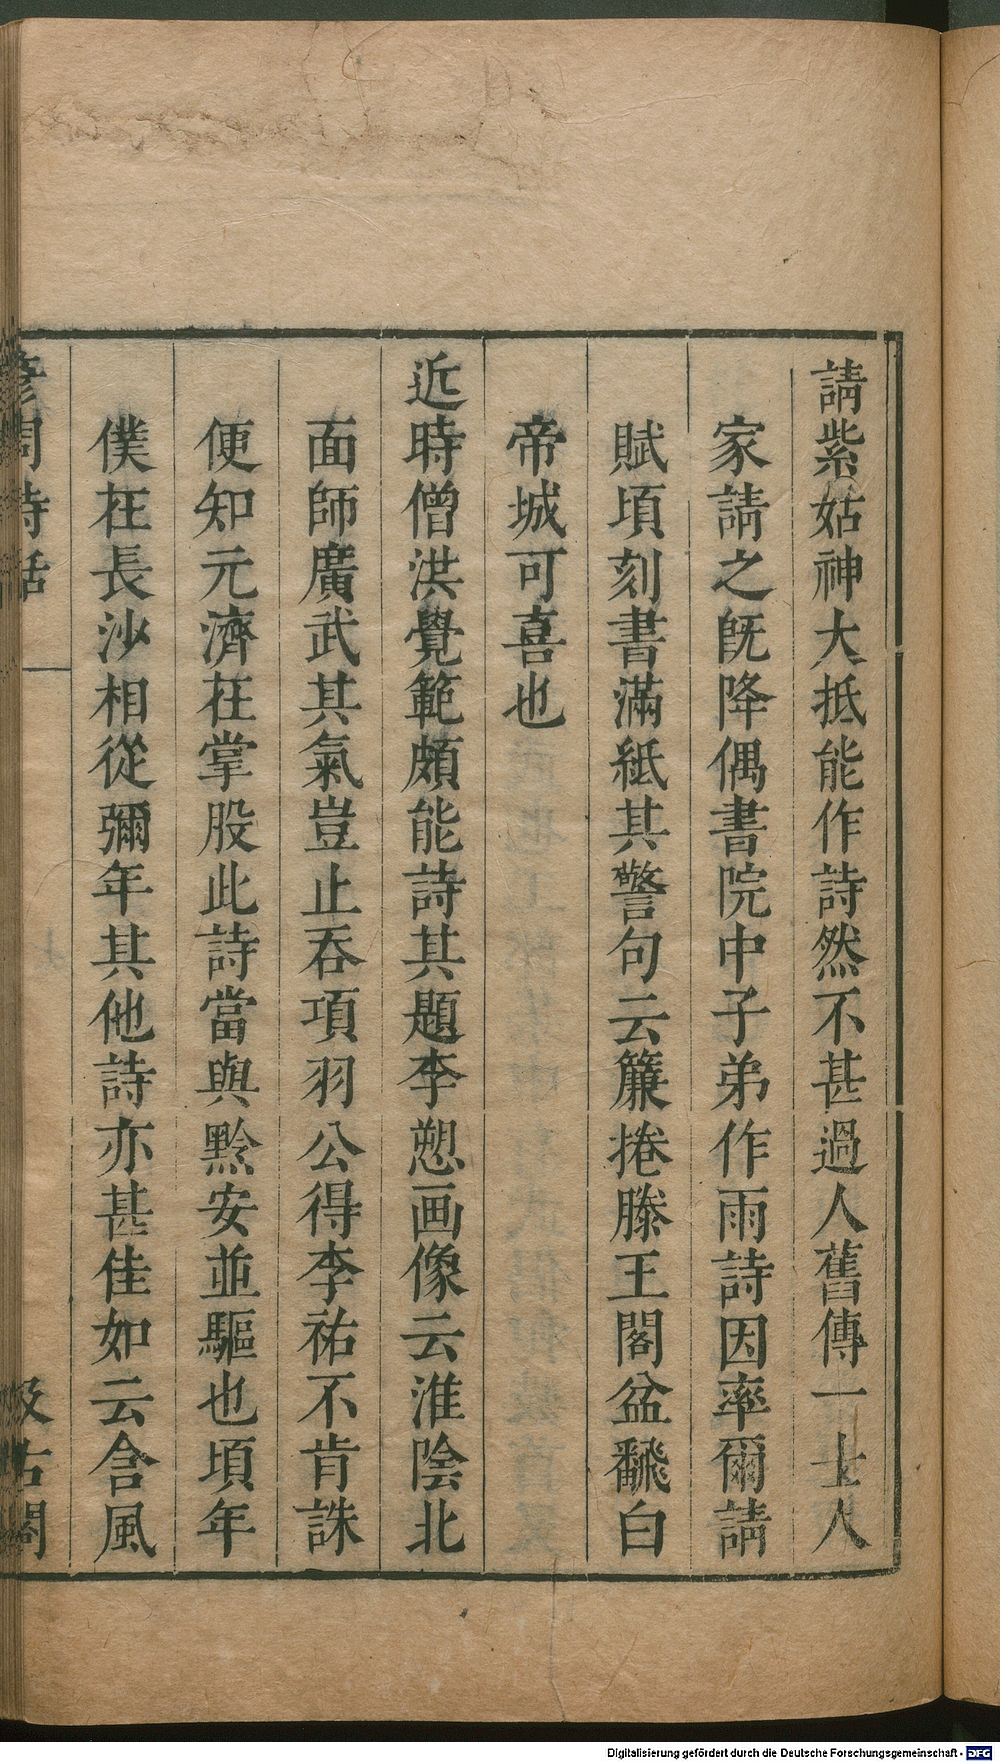 請紫姑神大抵能作詩然不甚過人舊傳一士人
家請之旣降偶書院中子弟作雨詩因率爾請
賦頃刻書滿紙其警句云簾捲滕王閣盆飜白
帝城可喜也
近時僧洪覺範頗能詩其題李愬画像云淮陰北
面師廣武其氣豈止吞項羽公得李祐不肯誅
便知元濟在掌股此詩當與黔安並驅也頃年
僕在長沙相從彌年其他詩亦甚佳如云含風
彦周詩話
汲古閣
Digitalisierung gefördert durch die Deutsche Forschungsgemeinschaft - DFG